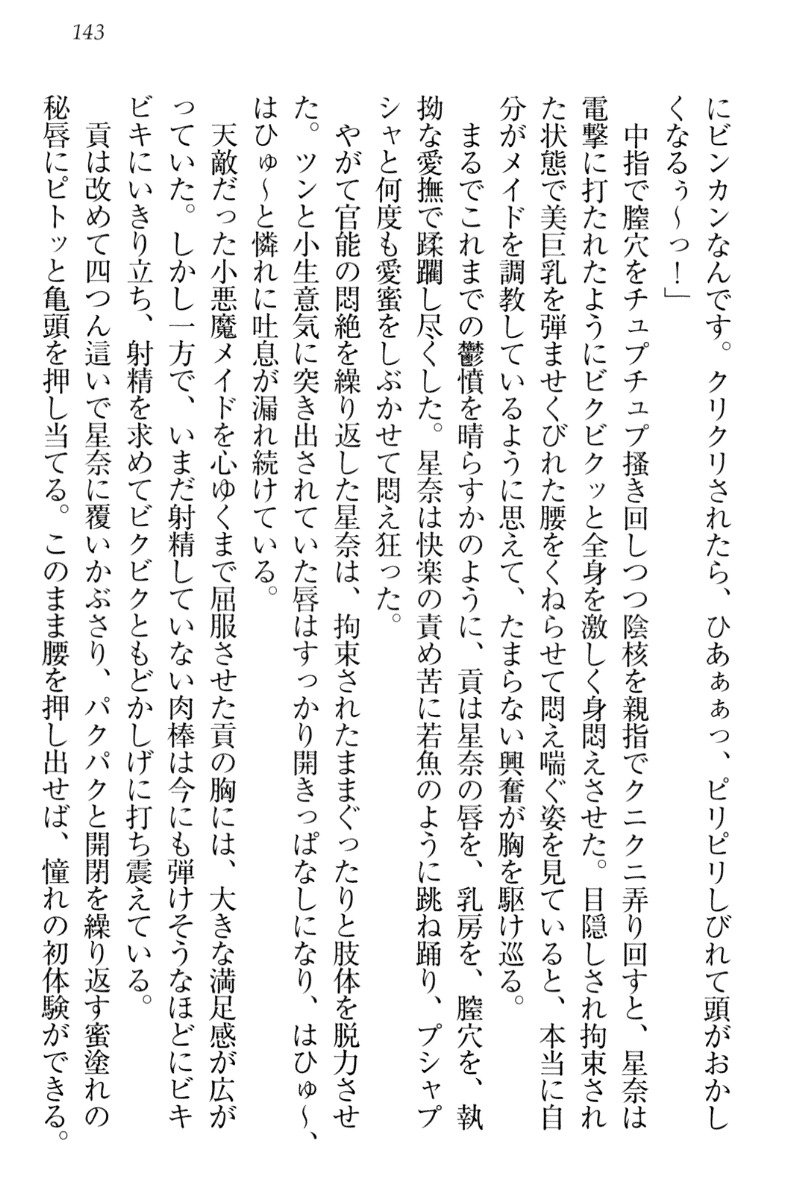 143
にビンカンなんです。クリクリされたら、ひあぁぁっ、ピリピリしびれて頭がおかし
くなるぅ～っ！」
　中指で膣穴をチュプチュプ掻き回しつつ陰核を親指でクニクニ弄り回すと、星奈は
電撃に打たれたようにビクビクッと全身を激しく身悶えさせた。目隠しされ拘束され
た状態で美巨乳を弾ませくびれた腰をくねらせて悶え喘ぐ姿を見ていると、本当に自
分がメイドを調教しているように思えて、たまらない興奮が胸を駆け巡る。
　まるでこれまでの鬱憤を晴らすかのように、貢は星奈の唇を、乳房を、膣穴を、執
拗な愛撫で蹂躙し尽くした。星奈は快楽の責め苦に若魚のように跳ね踊り、プシャプ
シャと何度も愛蜜をしぶかせて悶え狂った。
　やがて官能の悶絶を繰り返した星奈は、拘束されたままぐったりと肢体を脱力させ
た。ツンと小生意気に突き出されていた唇はすっかり開きっぱなしになり、はひゅ～、
はひゅ～と憐れに吐息が漏れ続けている。
　天敵だった小悪魔メイドを心ゆくまで屈服させた貢の胸には、大きな満足感が広が
っていた。しかし一方で、いまだ射精していない肉棒は今にも弾けそうなほどにビキ
ビキにいきり立ち、射精を求めてビクビクともどかしげに打ち震えている。
　貢は改めて四つん這いで星奈に覆いかぶさり、パクパクと開閉を繰り返す蜜塗れの
秘唇にピトッと亀頭を押し当てる。このまま腰を押し出せば、憧れの初体験ができる。